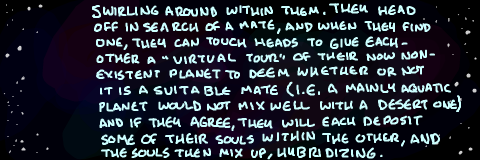 SWIRLING AROUND WITHIN THEM. THEY HEAD
OFF IN SEARCH OF A MATE, AND WHEN THEY FIND
ONE, THEY CAN TOUCH HEADS TO GIVE EACH-
OTHER A "VIRTUAL TOUR" OF THEIR NOW NON-
EXISTENT PLANET TO DEEM WHETHER OR NOT
IT IS A SUITABLE MATE (I.E. A MAINLY AQUATIC
PLANET WOULD NOT MIX WELL WITH A DESERT ONE)
AND IF THEY AGREE, THEY WILL EACH DEPOSIT
SOME OF THEIR SOULS WITHIN THE OTHER, AND
THE SOULS THEN MIX UP, HYBRIDIZING.